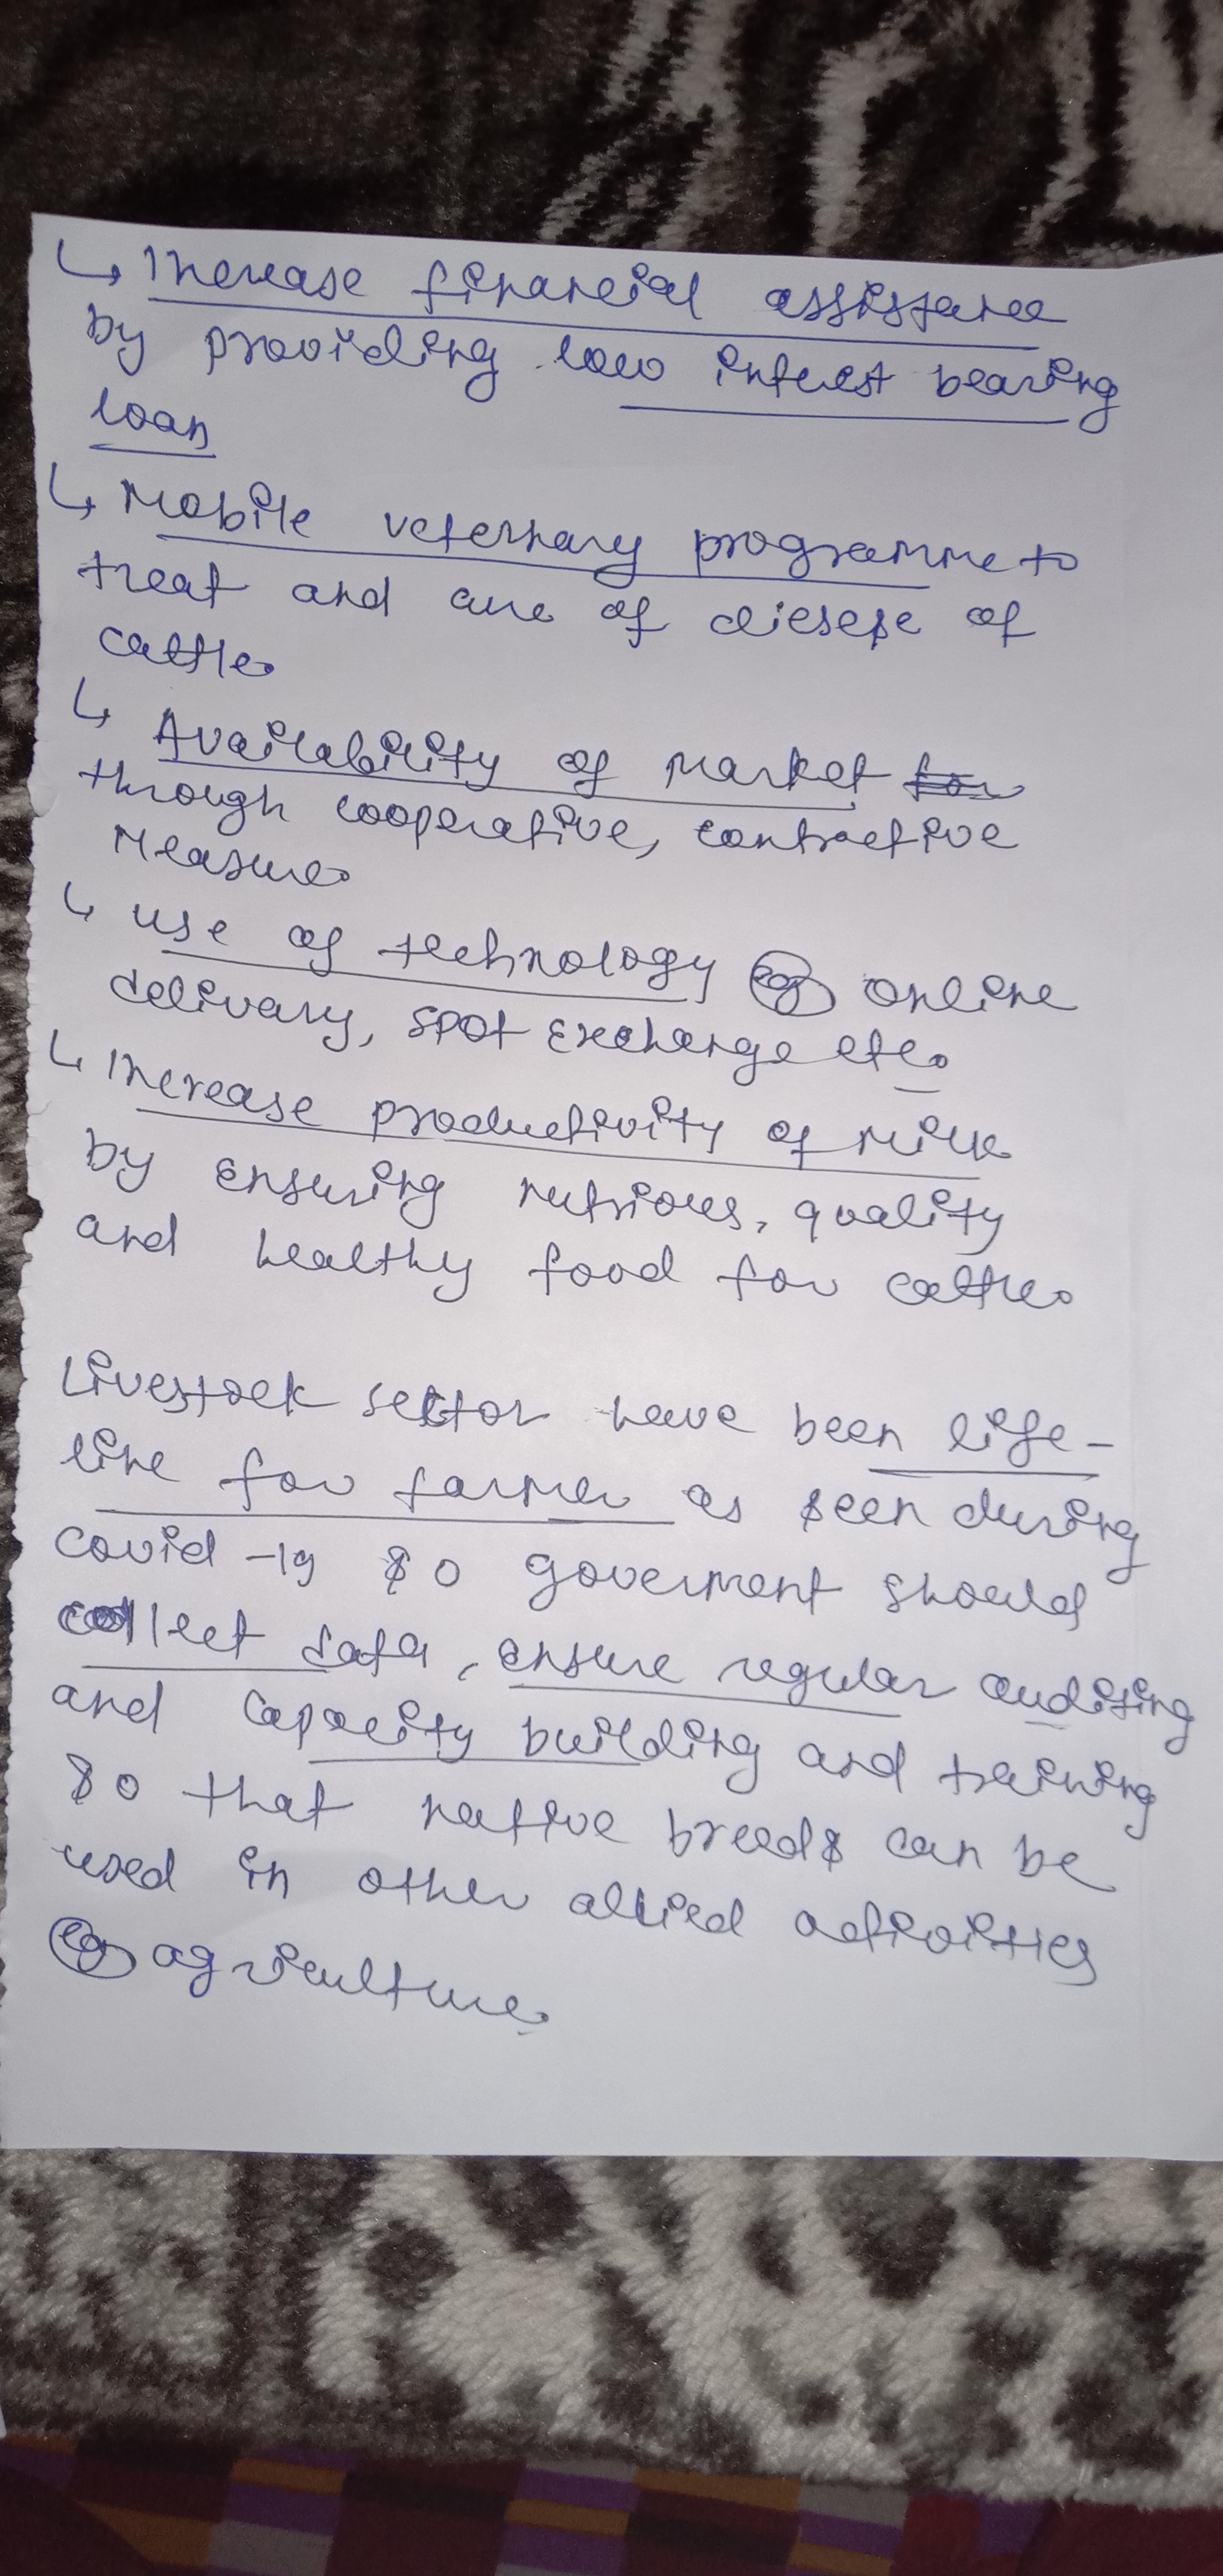 ↳ Increase financial assistance
by providing low interest bearing
loan
↳ Mobile veternary programme to
treat and cure of diesese of
cattle.
↳ Availability of market for
through cooperative, contractive
measure.
↳ use of technology eg online
delivary, spot exchange etc.
↳ Increase productivity of milk
by ensuring nutrious, quality
and healthy food for cattle.
Livestock sector have been life-
line for farmer as seen during
covid-19 so goverment should
collect data, ensure regular auditing
and capacity building and training
so that native breeds can be
used in other allied activities
eg agriculture.